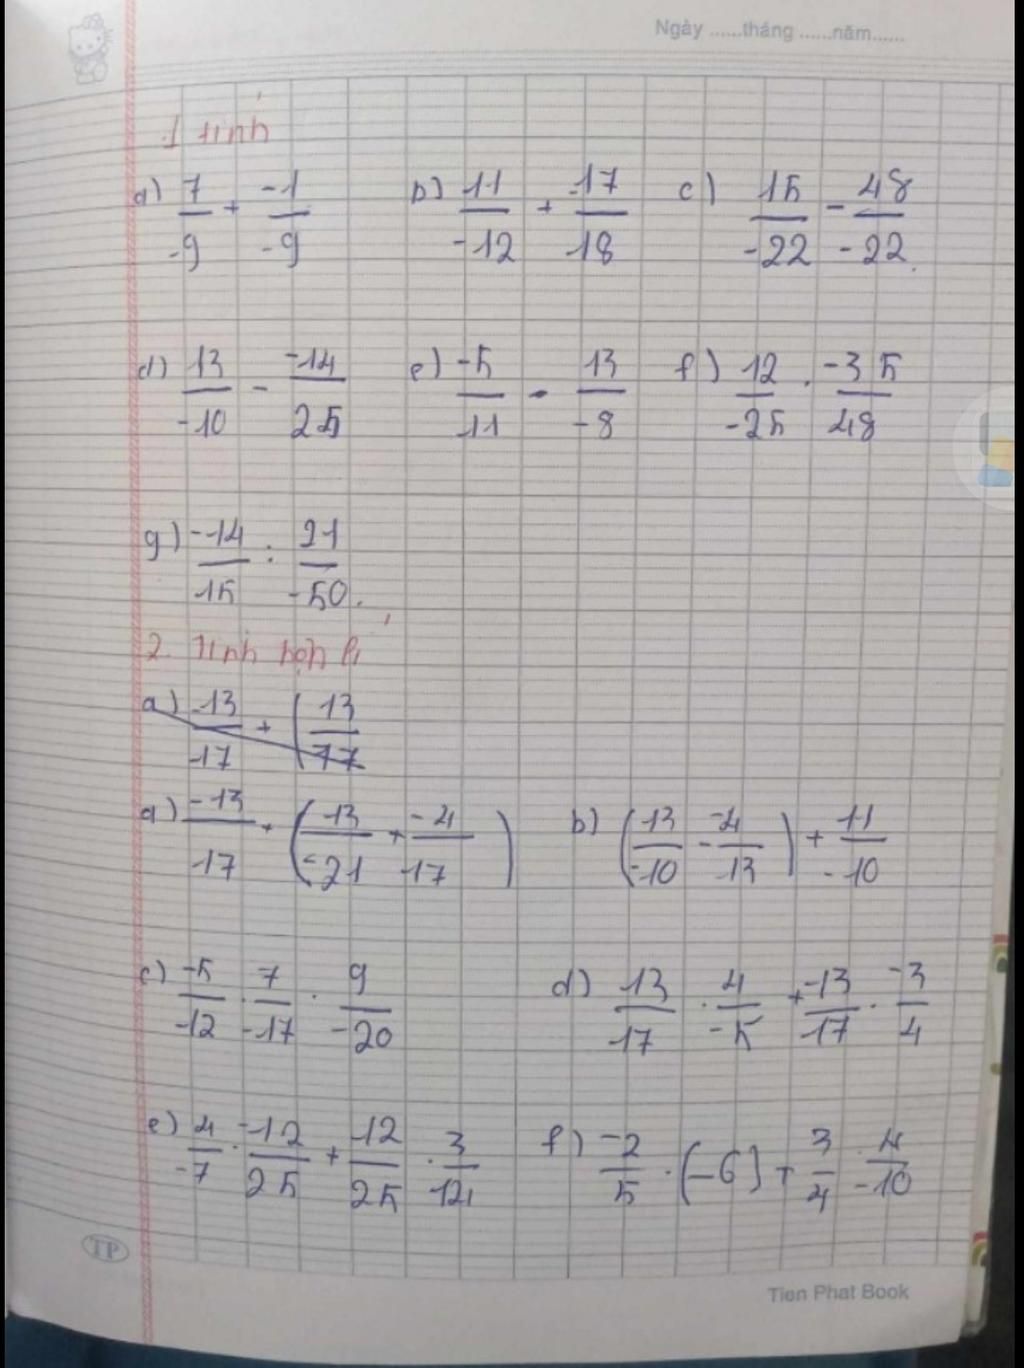 Ngày ......tháng ......năm......
1 tính
a) 7/-9 + -1/-9 b) 11/-12 + -17/18 c) 15/-22 - 48/-22.
d) 13/-10 - -14/25 e) -5/11 - 13/-8 f) 12/-25 . -35/48
g) -14/15 : 21/-50.
2. Tính hợp lí
a) -13/17 + (13/77
a) -13/17 + (13/-21 + -4/17) b) (13/-10 - -4/13) + 11/-10
c) -5/-12 . 7/-17 . 9/-20 d) 13/17 . 4/-5 + -13/17 . -3/4
e) 4/-7 . -12/25 + 12/25 . 3/12 f) -2/5 . (-6) + 3/4 . 4/-10
TP
Tien Phat Book